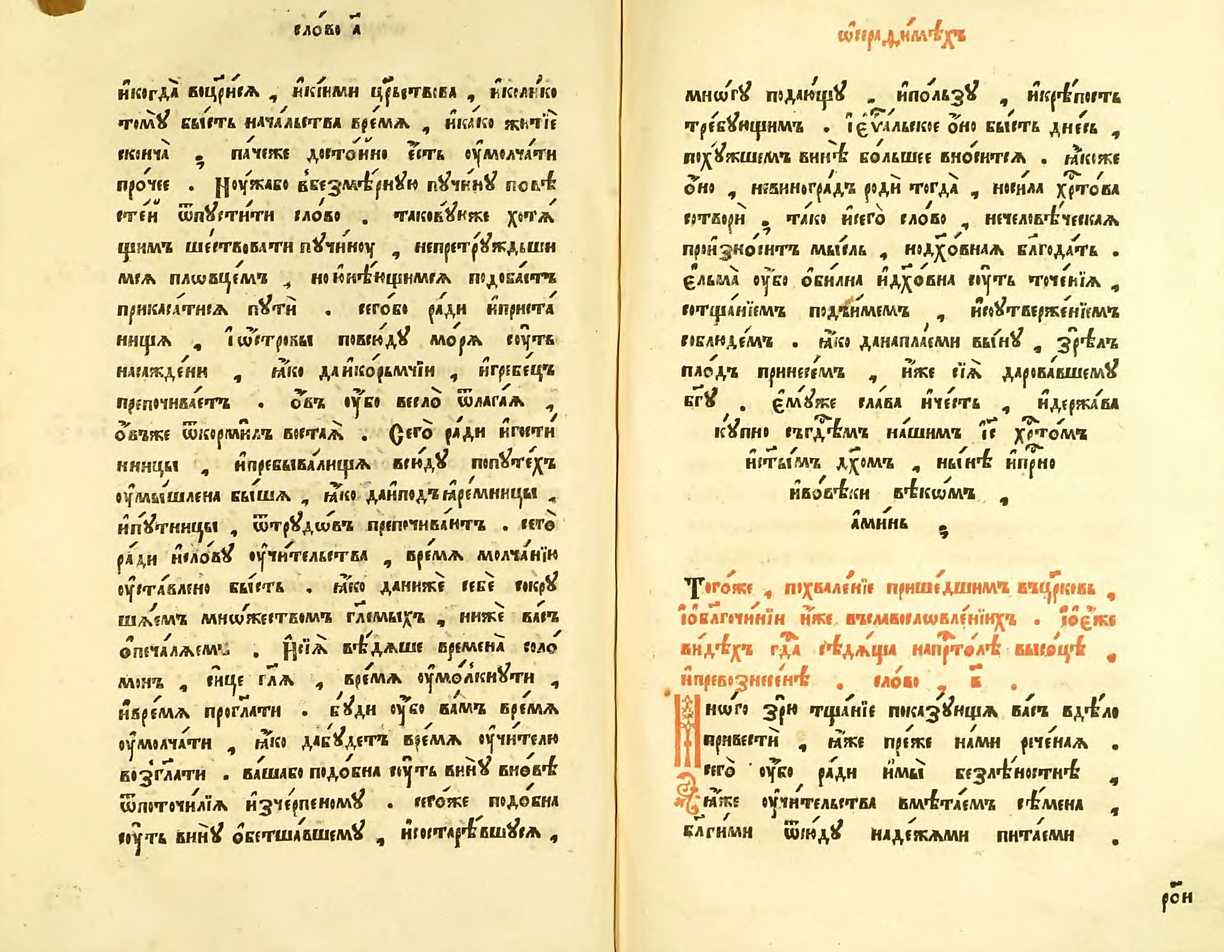 сло́во а҃
и҆когда̀ воцр҃и́сѧ , и҆кі́ими цр҃ьствова , и҆коли́ко
томꙋ̀ бы́сть нача́льства вре́мѧ , и҆ка́ко житїѐ
сконча̀ ; па́чеже досто́йно є҆́сть ᲂу҆молча́ти
про́чее . Ноу́жабо вбезмѣ́рную пꙋчи́нꙋ повѣ
сте́й ѿпꙋсти́ти сло́во . такову́юже хотѧ́
щимъ ше́ствовати пꙋчи́ноу , непретрꙋжда́ющи
мсѧ пловце́мъ , но и҆ имꙋ́щимсѧ подоба́етъ
прикаса́тисѧ пꙋтѝ . сего́бо ра́ди и҆приста́
нища , і҆ѡ҆́стровы повсю́дꙋ мо́рѧ сꙋ́ть
насажде́ни , ꙗ҆́ко да и҆ко́рмчїи , и҆гребе́цъ
препочива́етъ . ѻ҆́въ ᲂу҆́бо весло̀ ѿлага́ѧ ,
ѻ҆́въже ѿкорми́лъ воста́ѧ . Сего̀ ра́ди и҆гости́
нницы , и҆пребыва́лища всю́дꙋ попꙋте́хъ
ᲂу҆мы́шлена бы́ша , ꙗ҆́ко да и҆подъꙗре́мницы ,
и҆пꙋ́тницы , ѿтрꙋдѡ́въ препочива́ютъ . сего̀
ра́ди и҆сло́вꙋ ᲂу҆чи́тельства , вре́мѧ молча́нїю
ᲂу҆ста́влено бы́сть . ꙗ҆́ко дани́же себѐ сокрꙋ
ша́емъ мно́жествомъ гл҃емыхъ , ни́же ва́съ
ѻ҆печалѧ́емъ . И҆сїѧ̀ вѣ́дѧше времена̀ соло
мо́нъ , си́це гл҃ѧ , вре́мѧ ᲂу҆мо́лкнꙋти ,
и҆вре́мѧ прогл҃ати . бꙋ́ди ᲂу҆́бо ва́мъ вре́мѧ
ᲂу҆молча́ти , ꙗ҆́ко дабꙋ́детъ вре́мѧ ᲂу҆чи́телю
возгл҃ати . ва́шабо подо́бна сꙋ́ть винꙋ̀ вно́вѣ
ѿпоточи́лїѧ и҆зче́рпеномꙋ . сего́же подо́бна
сꙋ́ть винꙋ̀ ѻ҆бетша́вшемꙋ , и҆состарѣ́вшꙋсѧ ,
ѡ҆серадѵ́мѣхъ
мно́гꙋ подаю́щꙋ , и҆по́льзꙋ , и҆крѣ́пость
тре́бꙋющимъ . і҆єѵⷢ҇а́льское ѻ҆́но бы́сть дне́сь ,
похꙋ́жшемъ винѣ̀ бо́льшее вно́ситсѧ . ꙗ҆́коже
ѻ҆́но , невиногра́дъ родѝ тогда̀ , но си́ла хрⷭ҇то́ва
сотворѝ , та́ко и҆сего̀ сло́во , нечеловѣ́ческаѧ
произно́ситъ мы́сль , но дх҃о́внаѧ блг҃ода́ть .
є҆льма̀ ᲂу҆́бо ѻ҆би́лна и҆дх҃о́вна сꙋ́ть точе́нїѧ ,
сотща́нїемъ подъи́мемъ , и҆соутвержде́нїемъ
соблюде́мъ . ꙗ҆́ко данапаѧ́еми вы́нꙋ , зрѣ́лъ
пло́дъ принесе́мъ , и҆́же сїѧ̀ дарова́вшемꙋ
бг҃ꙋ . є҆мꙋ́же сла́ва и҆че́сть , и҆держа́ва
кꙋ́пно съг҃ де́мъ на́шимъ і҆с҃ хрⷭ҇то́мъ
и҆ст҃ы́мъ дх҃омъ , ны́нѣ и҆при́сно
и҆вовѣ́ки вѣкѡ́мъ ,
а҆ми́нь ;
Того́же , похвале́нїе прише́дшимъ въцр҃ковь ,
і҆ѡ҆блг҃очи́нїи и҆́же въславосло́вленїихъ . і҆ѡ҆є҆́же
ви́дѣхъ гдⷭ҇а сѣдѧ́ща напрⷭ҇то́лѣ высо́цѣ ,
и҆превознесе́нѣ . сло́во , в҃ .
Мно́го зрю̀ тща́нїе показꙋ́юща ва́съ вдѣ́ло
привестѝ , ꙗ҆́же пре́же на́ми рече́наѧ .
сего̀ ᲂу҆́бо ра́ди и҆мы̀ безлѣ́ностнѣ ,
ꙗ҆́же ᲂу҆чи́тельства вмѣта́емъ сѣ́мена ,
блг҃и́ми ѿсю́дꙋ наде́жѧми пита́еми .
ро҃и